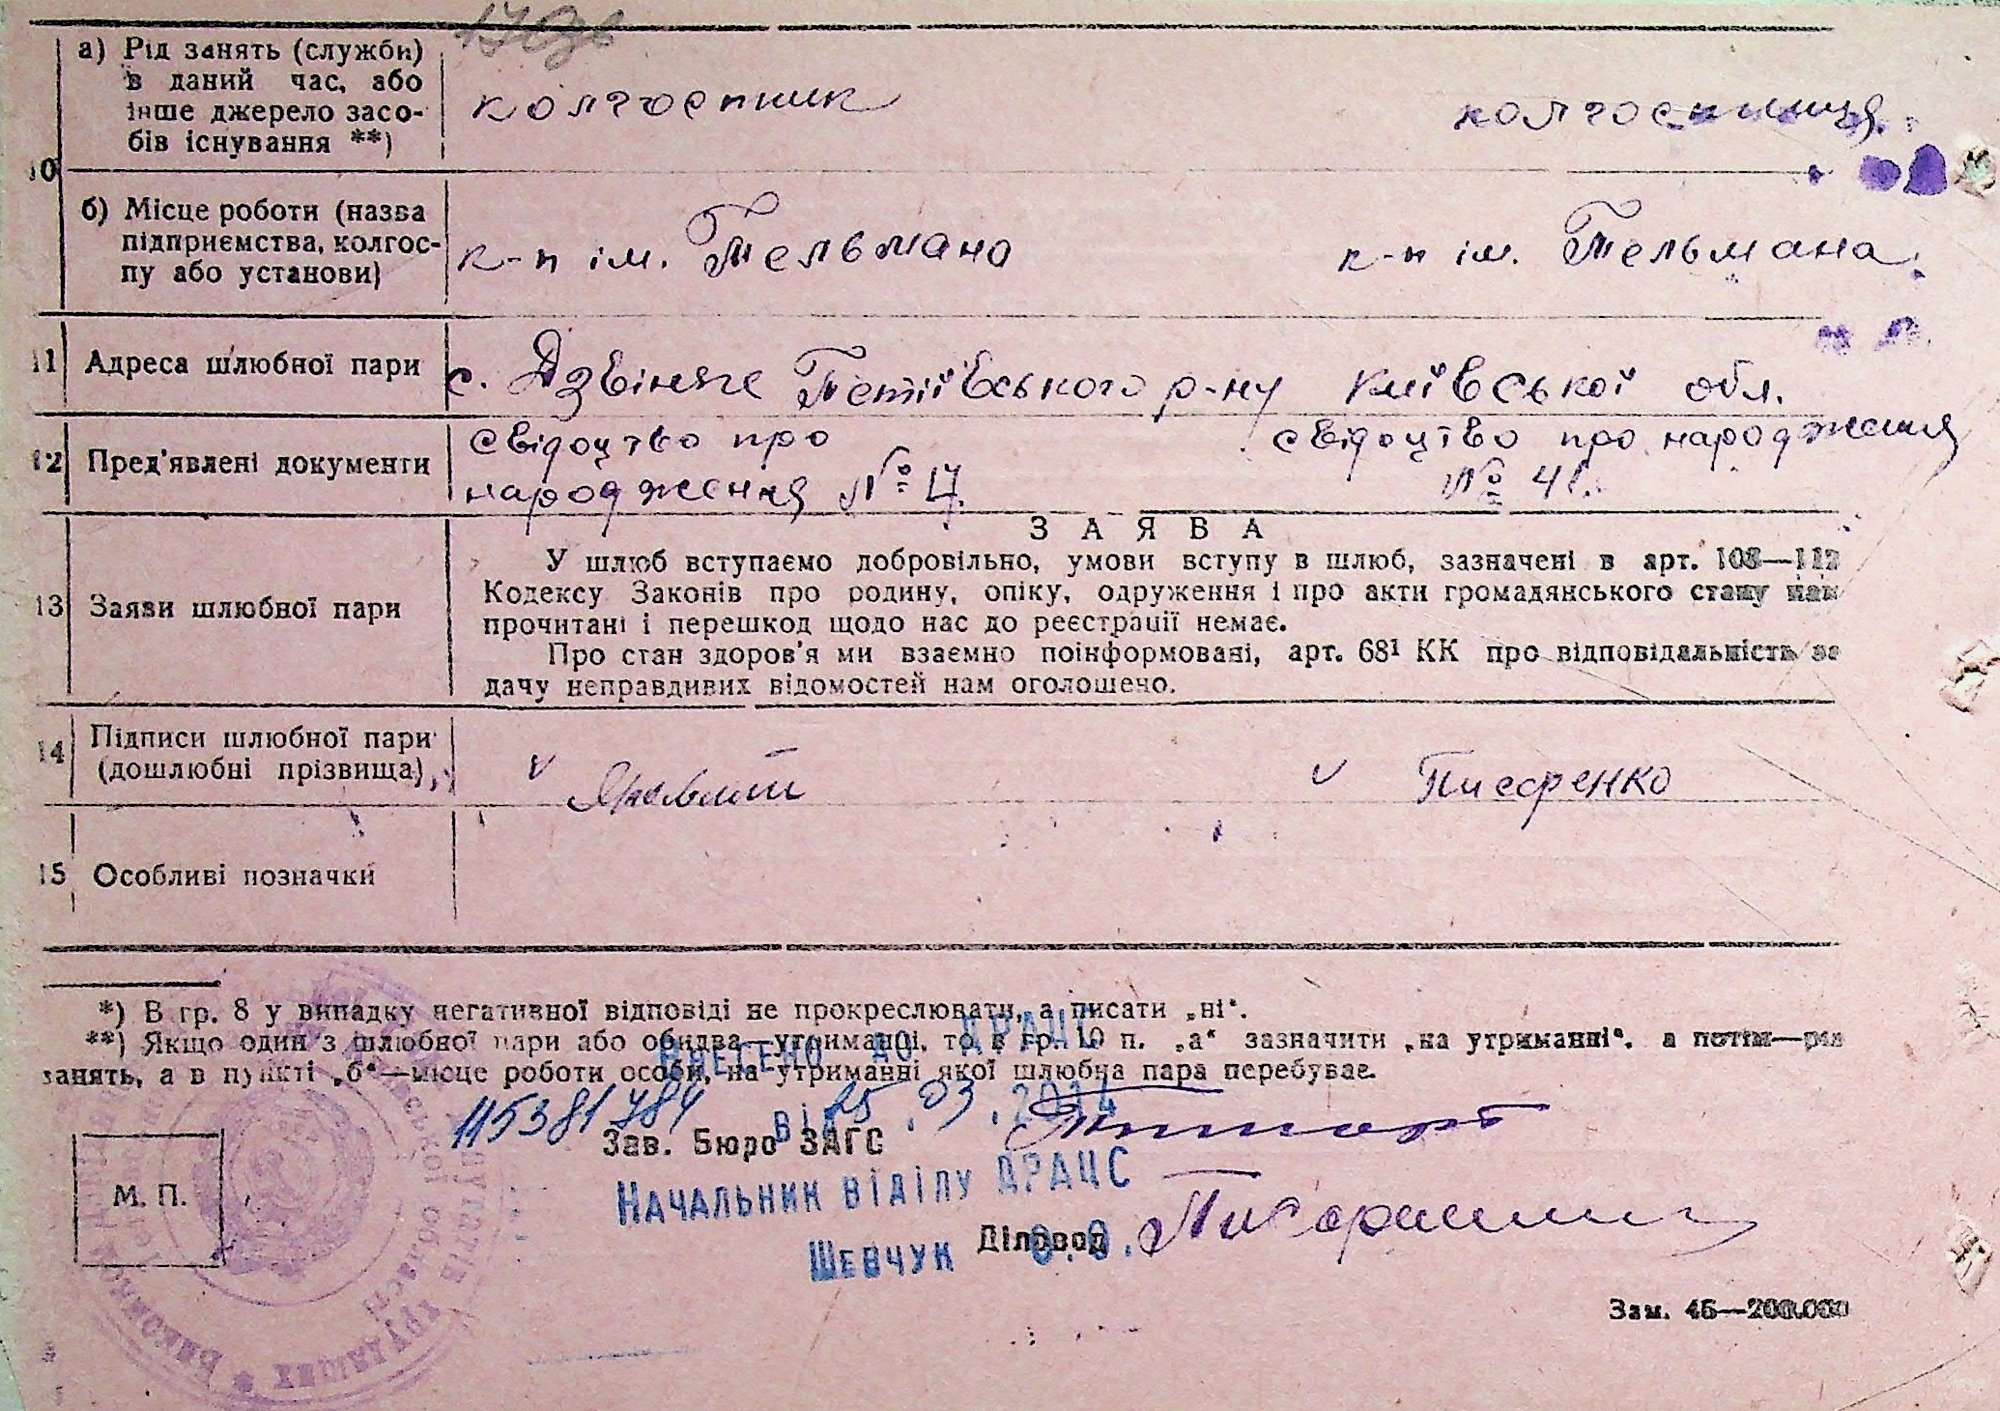 а) Рід занять (служби)
в даний час, або
інше джерело засо-
бів існування **)
колгоспник
колгоспниця
10
б) Місце роботи (назва
підприємства, колгос-
пу або установи)
к-п ім. Тельмана
к-п ім. Тельмана
11 Адреса шлюбної пари
с. Дзвіняче Тетіївського р-ну Київської обл.
12 Пред'явлені документи
свідоцтво про
народження №
свідоцтво про народження
№ 41.
З А Я В А
13 Заяви шлюбної пари
У шлюб вступаємо добровільно, умови вступу в шлюб, зазначені в арт. 108—112
Кодексу Законів про родину, опіку, одруження і про акти громадянського стану нам
прочитані і перешкод щодо нас до реєстрації немає.
Про стан здоров'я ми взаємно поінформовані, арт. 68¹ КК про відповідальність за
дачу неправдивих відомостей нам оголошено.
14 Підписи шлюбної пари
(дошлюбні прізвища)
v
v Писаренко
15 Особливі позначки
*) В гр. 8 у випадку негативної відповіді не прокреслювати, а писати „ні“.
**) Якщо один з шлюбної пари або обидва—утриманці, то в гр. 10 п. „а“ зазначити „на утриманні“, а потім—рід
занять, а в пункті „б“—місце роботи особи, на утриманні якої шлюбна пара перебуває.
Внесено до ДРАЦС
115381784 від 25.03.2014
Зав. Бюро ЗАГС
Начальник відділу ДРАЦС
М. П.
Діловод
Шевчук О.О.
Зам. 46—200.000